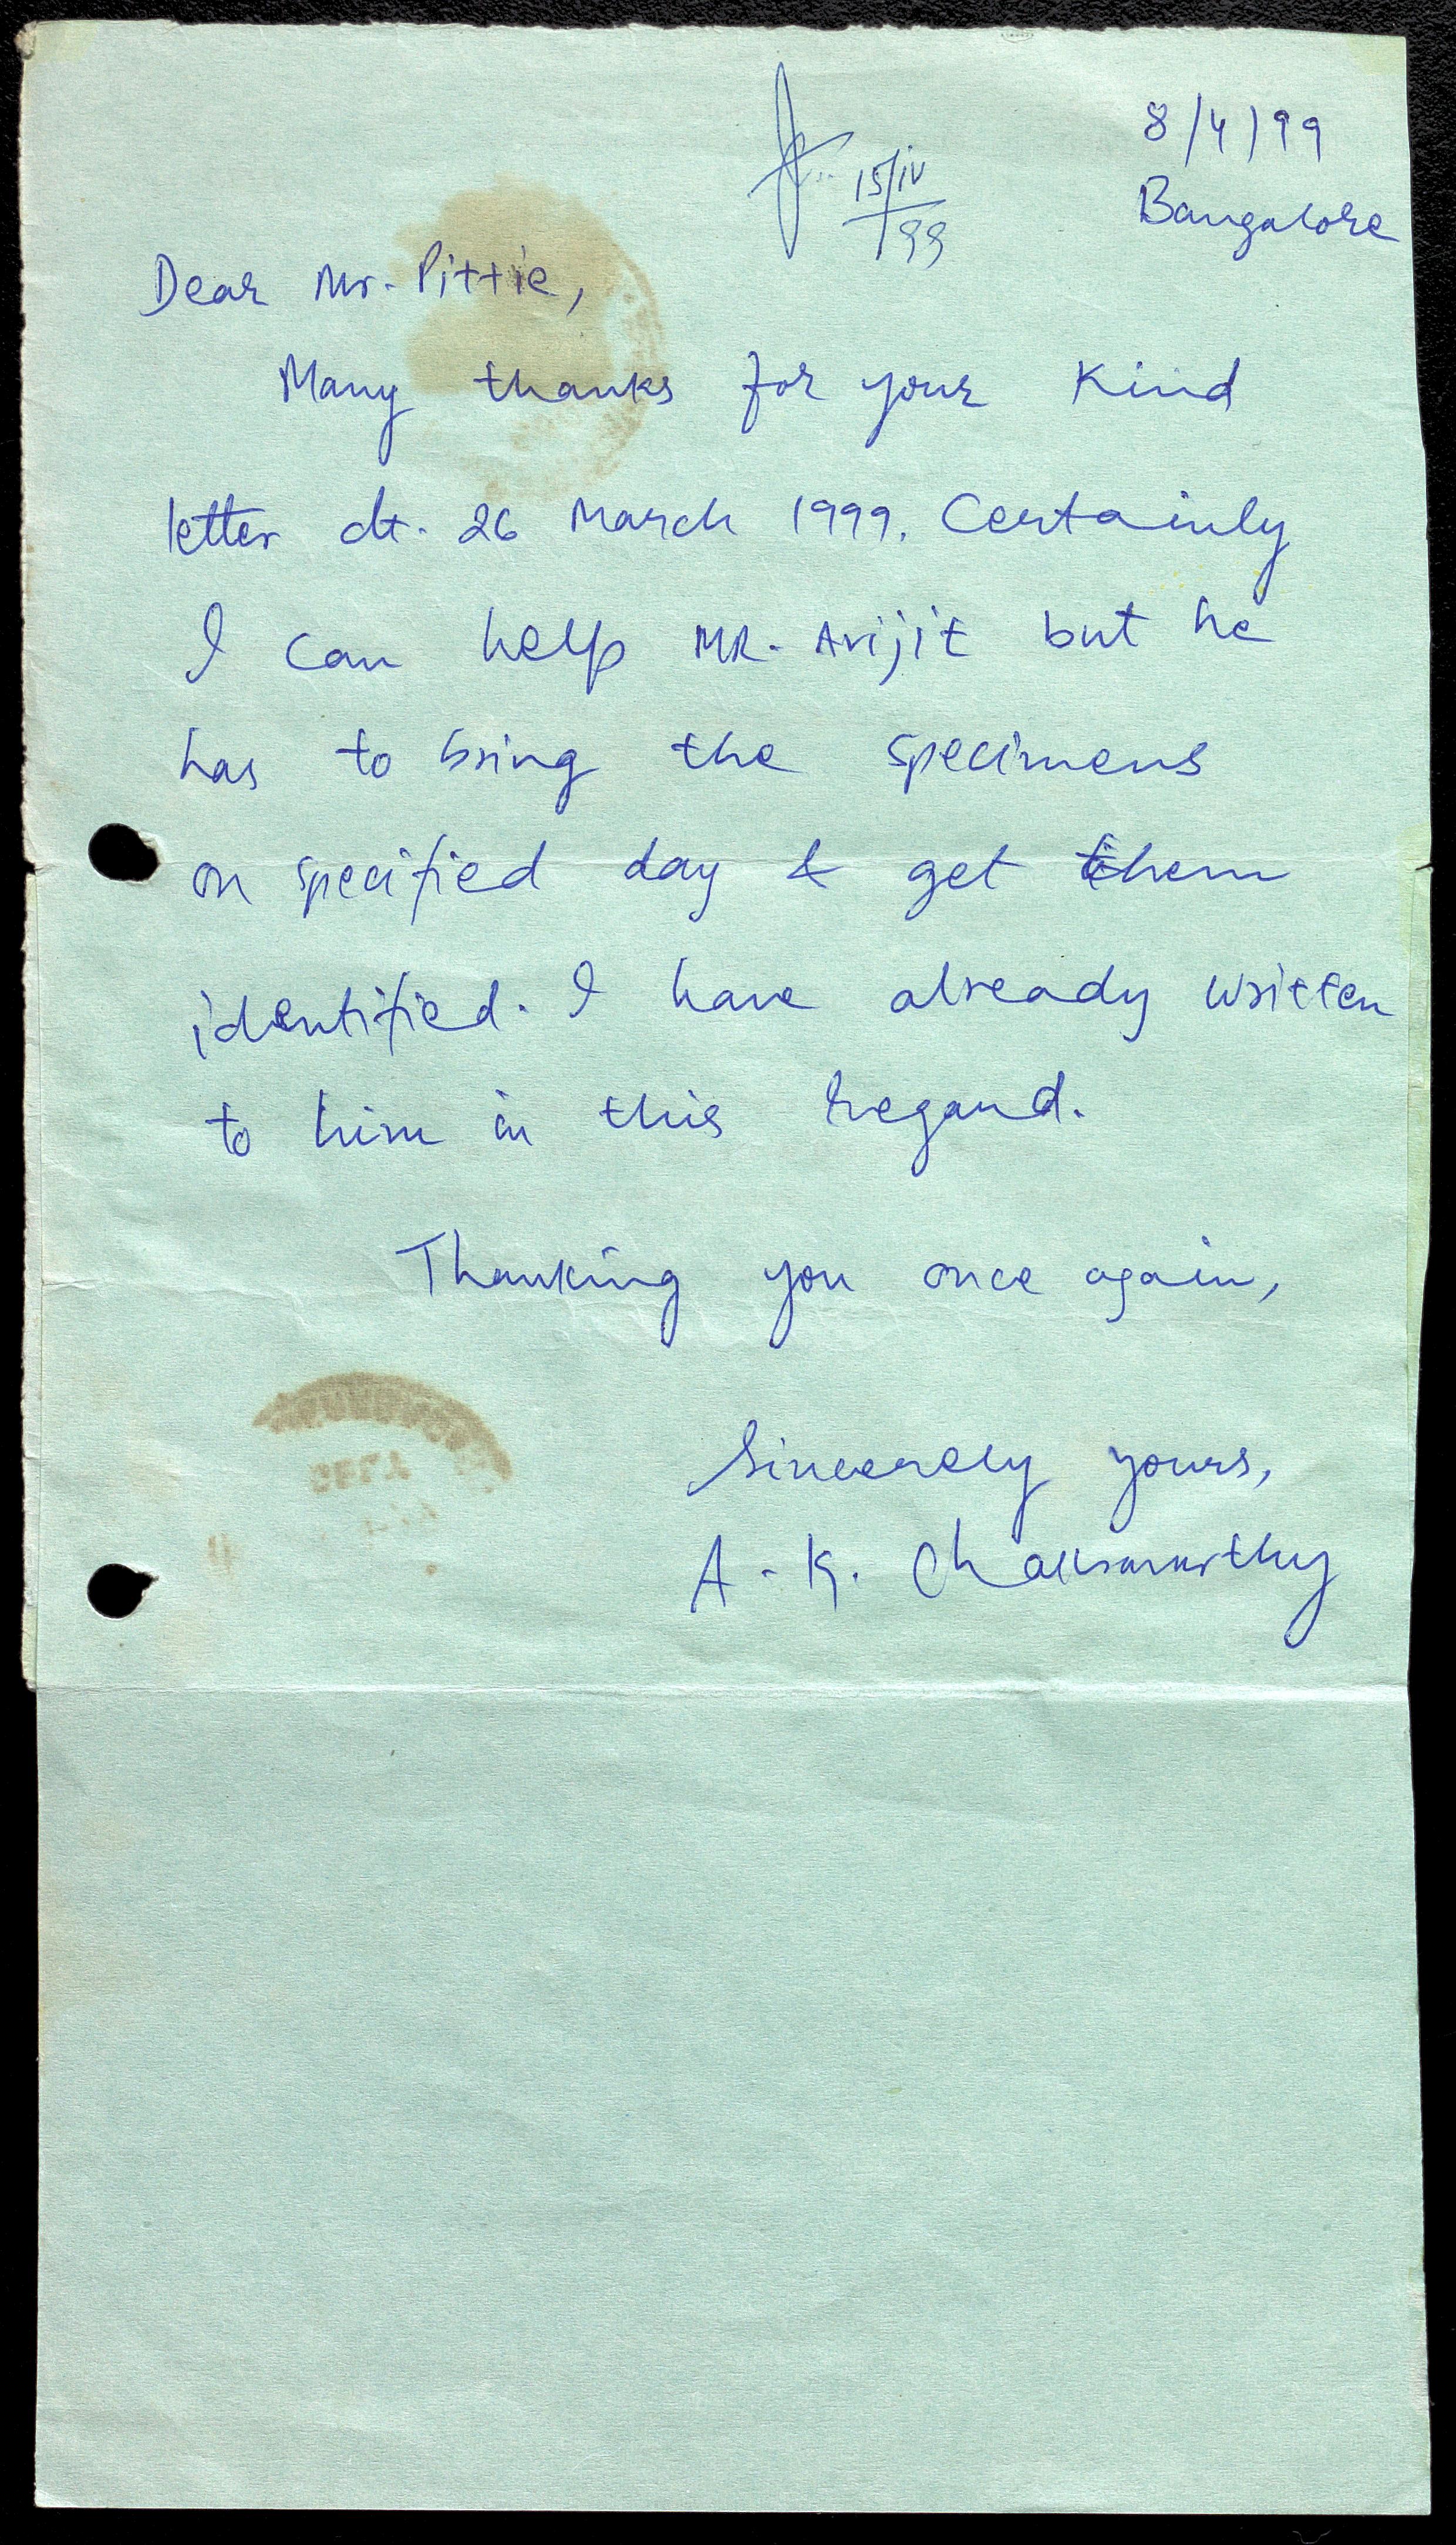 8/4/99
15/iv
99
Bangalore
Dear Mr. Pittie,
Many thanks for your kind
letter dt. 26 March 1999. Certainly
I can help MR. Avijit but he
has to bring the specimens
on specified day & get them
identified. I have already written
to him in this regard.
Thanking you once again,
Sincerely yours,
A. K. Chakravarthy